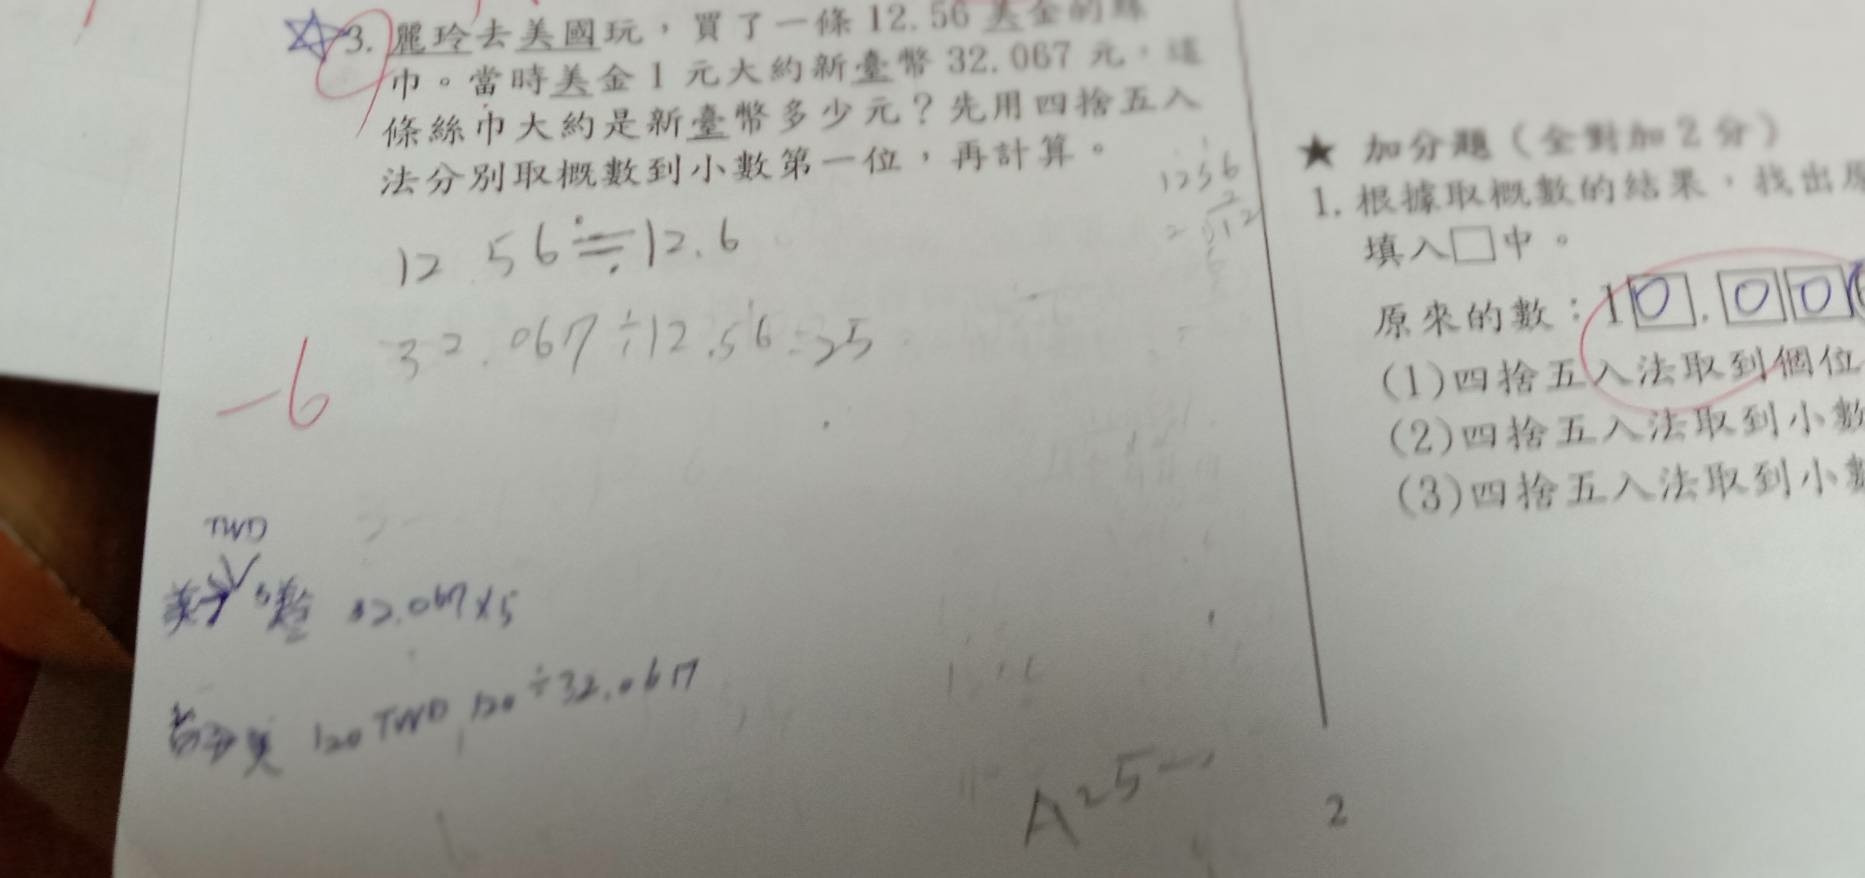 3. 麗玲去美國玩，買了一條 12.56 美金的絲
巾。當時美金 1 元大約新臺幣 32.067 元，這
條絲巾大約是新臺幣多少元？先用四捨五入
法分別取概數到小數第一位，再計算。
12 56≒12.6
32.067÷12.56=25
-6
TWD
32.067×5
120 TWD 120÷32.067
A 25
1256
★ 加分題（全對加 2 分）
1. 根據取概數的結果，找出原
填入□中。
原來的數：10.00
(1)四捨五入法取到個位
(2)四捨五入法取到小數
(3)四捨五入法取到小數
2